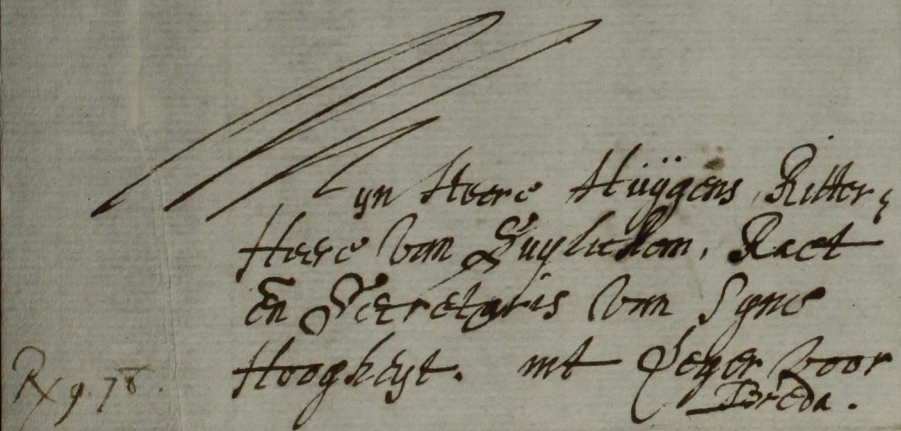 Myn Heere Huÿgens, Ritter,
Heere van Zuylichem, Raet
En Secretaris van Syne
Hoogheyt. int Leger voor
Breda.